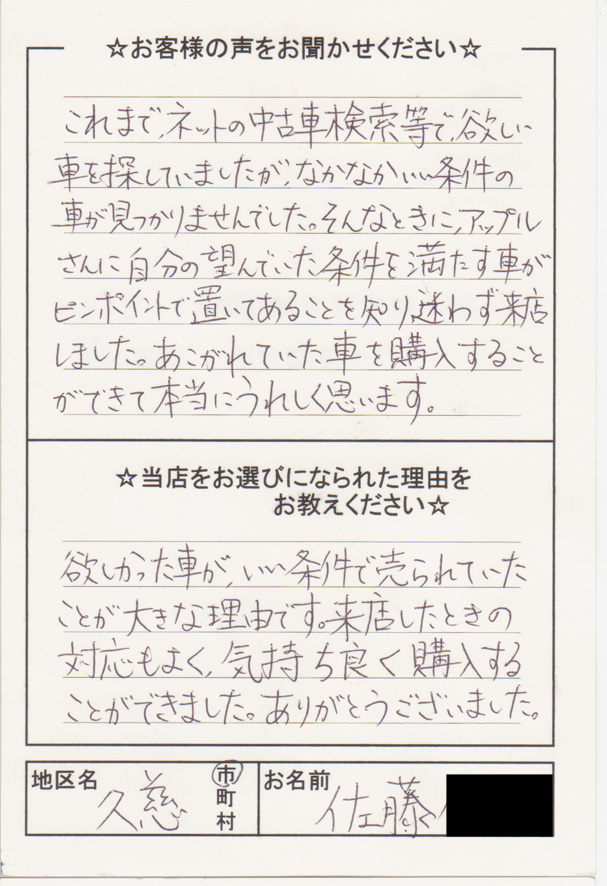 ☆お客様の声をお聞かせください☆
これまで、ネットの中古車検索等で、欲しい
車を探していましたが、なかなかいい条件の
車が見つかりませんでした。そんなときに、アップル
さんに自分の望んでいた条件を満たす車が
ピンポイントで置いてあることを知り、迷わず来店
しました。あこがれていた車を購入すること
ができて本当にうれしく思います。
☆当店をお選びになられた理由を
お教えください☆
欲しかった車が、いい条件で売られていた
ことが大きな理由です。来店したときの
対応もよく、気持ち良く購入する
ことができました。ありがとうございました。
地区名 久慈 市 町 村 お名前 佐藤